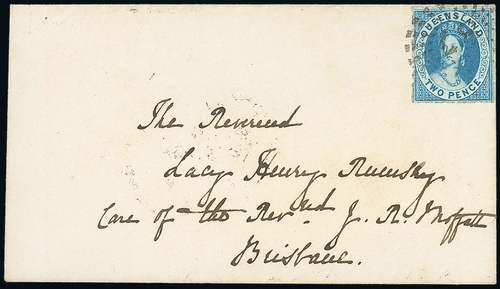 QUEENSLAND
TWO PENCE
The Reverend
Lacy Henry Rumsey
Care of the Revnd. J. R. Moffatt
Brisbane.